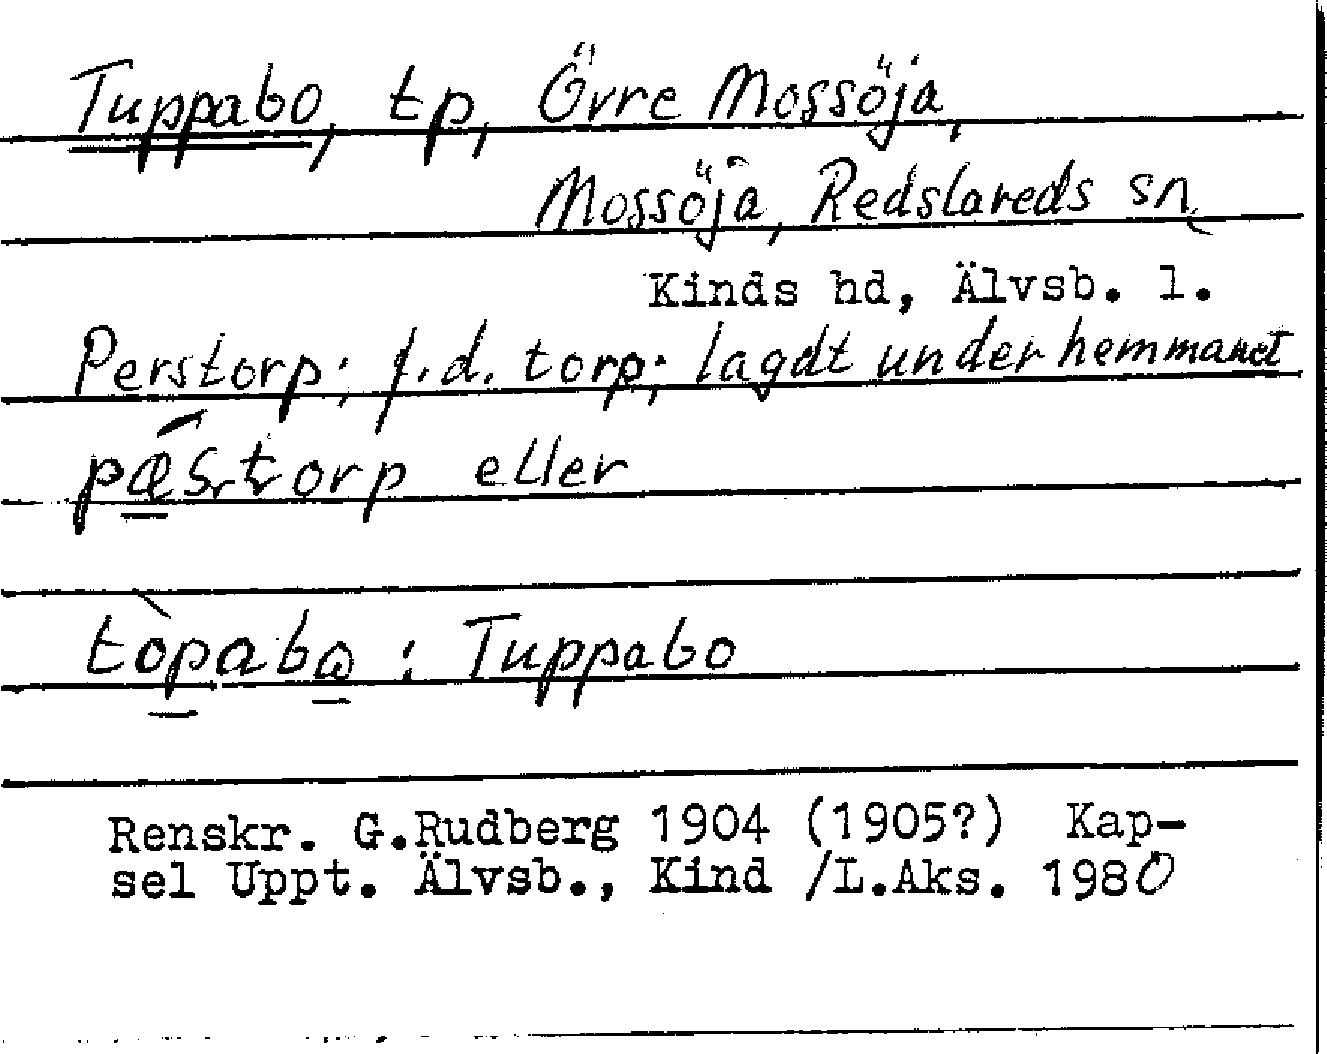 Tuppabo, tp, Övre Mossöja,
Mossöja, Redslareds sn
Kinds hd, Älvsb. l.
Perstorp; f.d. torp; lagdt under hemmanet
pǽstorp eller
tòpabo : Tuppabo
Renskr. G.Rudberg 1904 (1905?) Kap-
sel Uppt. Älvsb., Kind /L.Aks. 1980